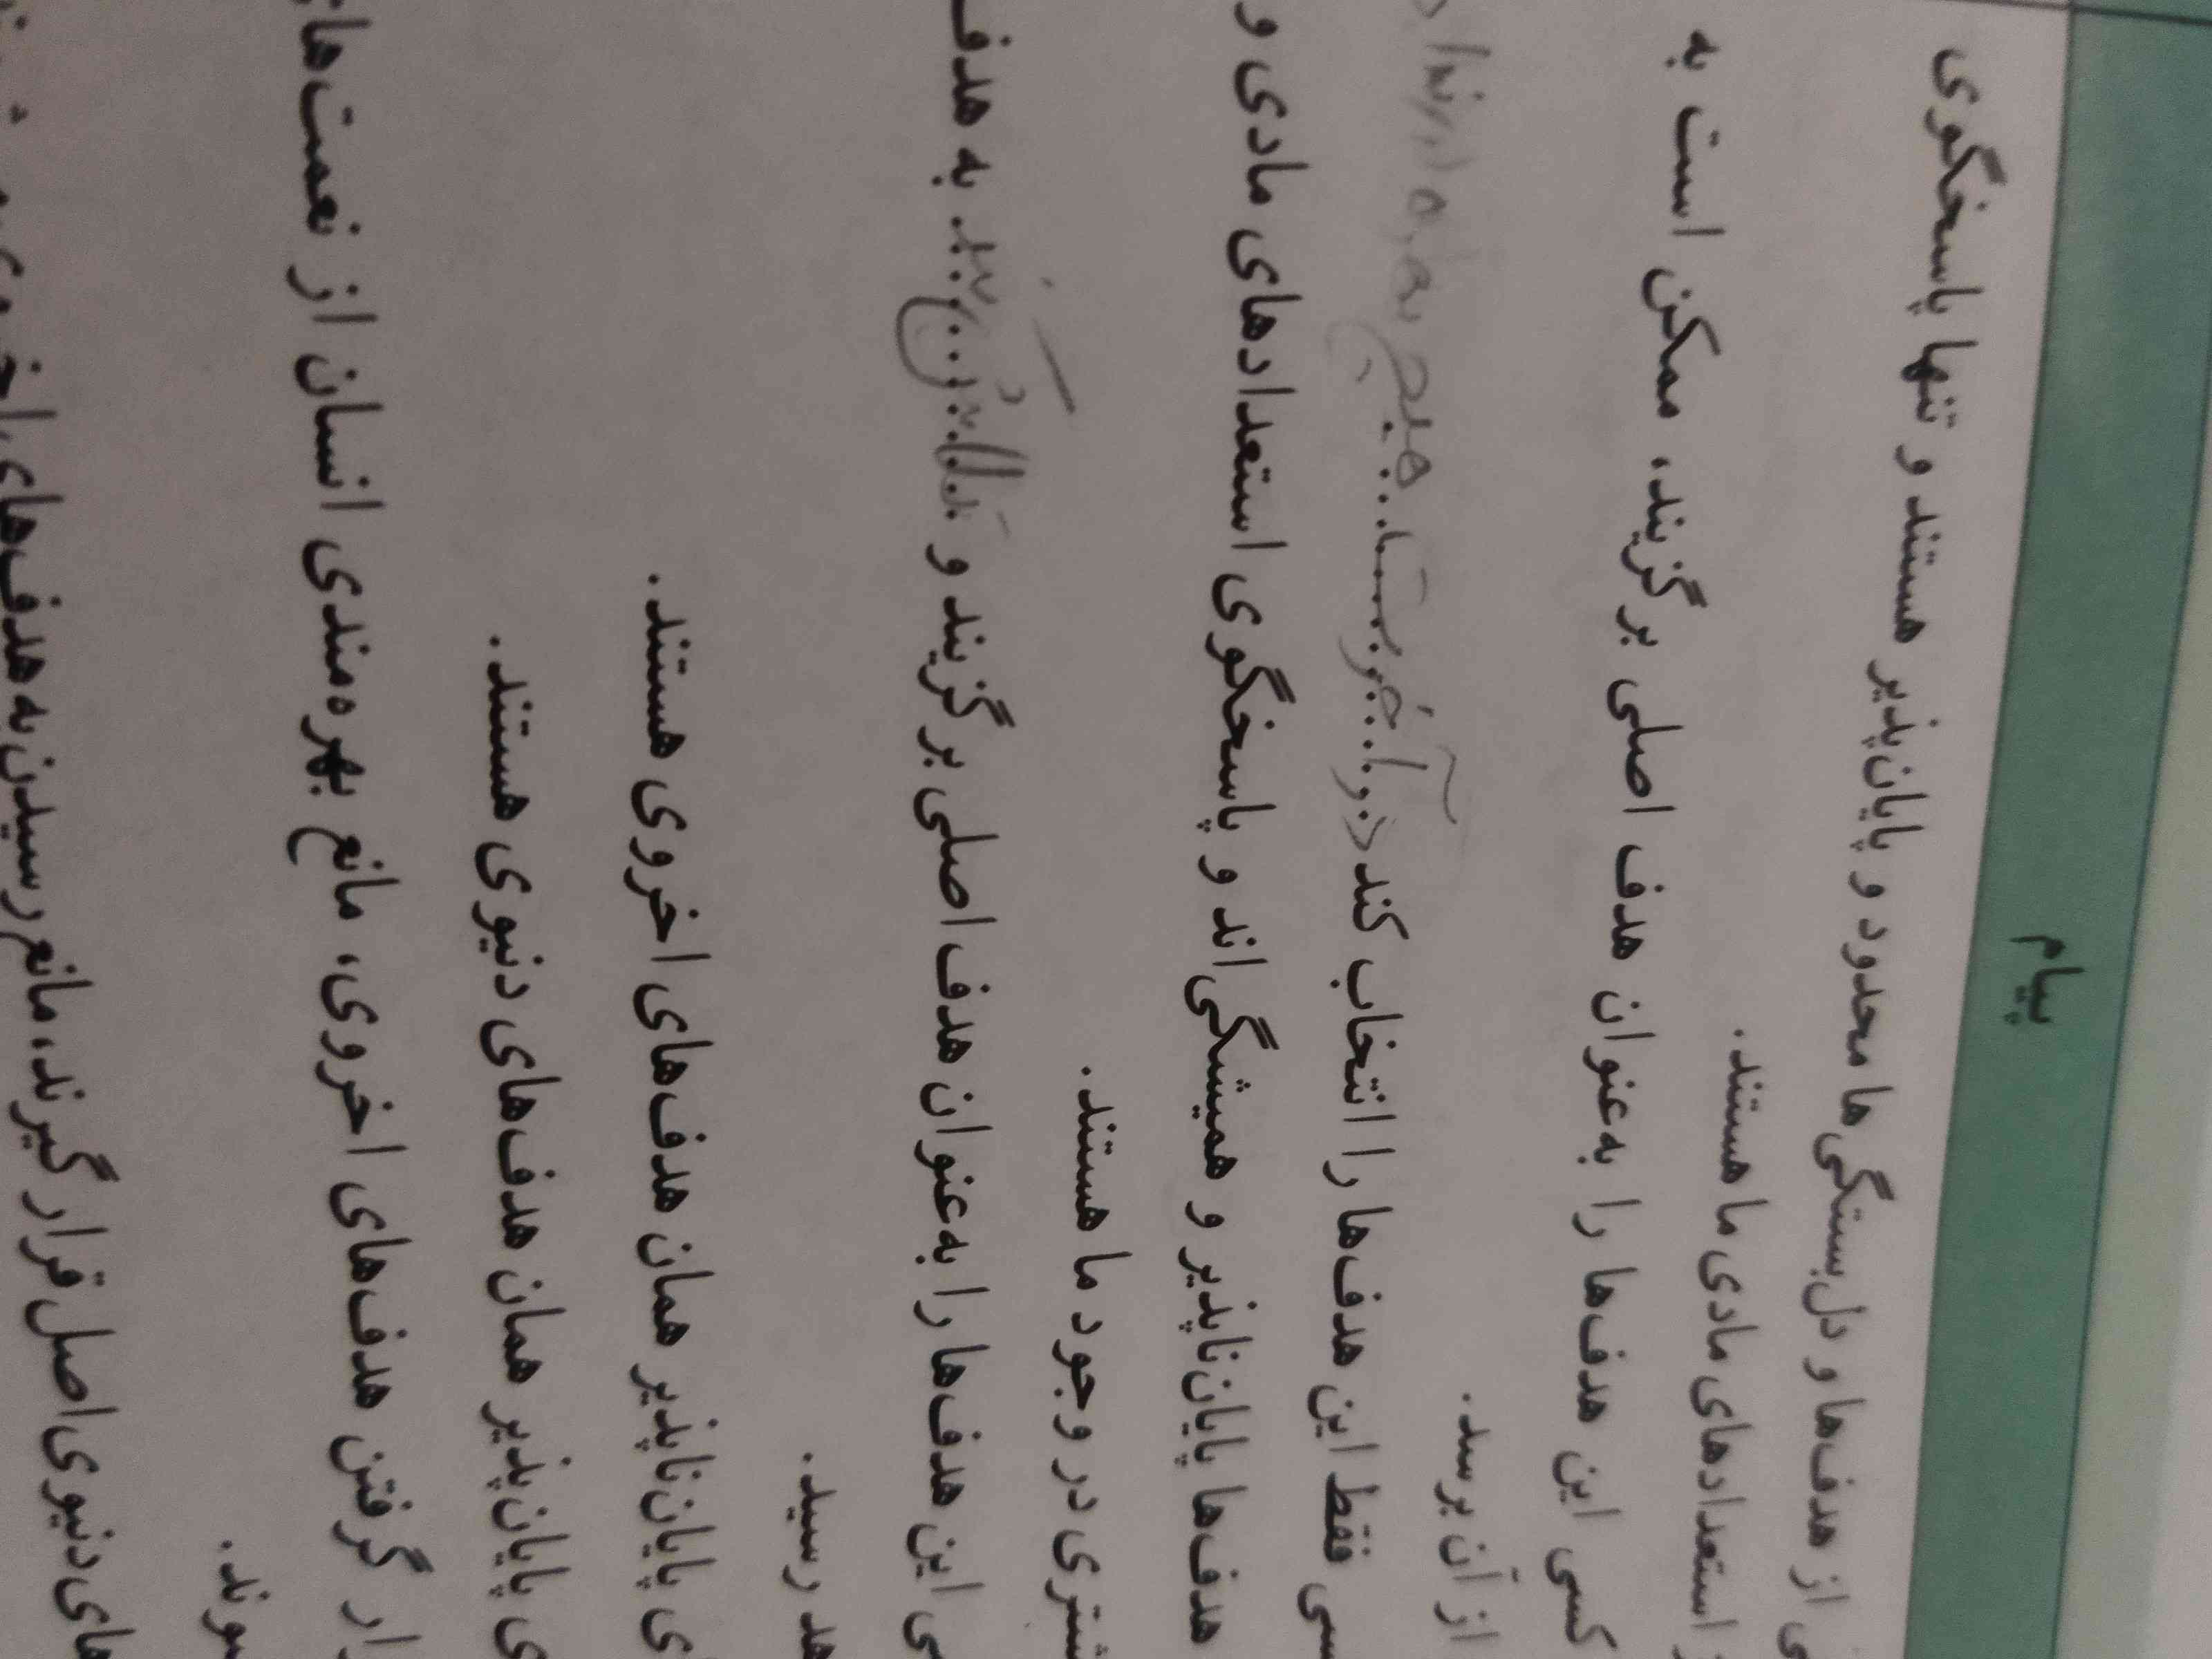 پیام
از هدف‌ها و دل‌بستگی‌ها محدود و پایان‌پذیر هستند و تنها پاسخگوی
استعدادهای مادی ما هستند.
کسی این هدف‌ها را به‌عنوان هدف اصلی برگزیند، ممکن است به
از آن برسد.
فقط این هدف‌ها را انتخاب کند در آخرت هیچ بهره
هدف‌ها پایان‌ناپذیر و همیشگی‌اند و پاسخگوی استعدادهای مادی و
در وجود ما هستند.
این هدف‌ها را به‌عنوان هدف اصلی برگزیند و به هدف
رسید.
پایان‌ناپذیر همان هدف‌های اخروی هستند.
پایان‌پذیر همان هدف‌های دنیوی هستند.
گرفتن هدف‌های اخروی، مانع بهره‌مندی انسان از نعمت‌های
دنیوی اصل قرار گیرند، مانع رسیدن به هدف‌های